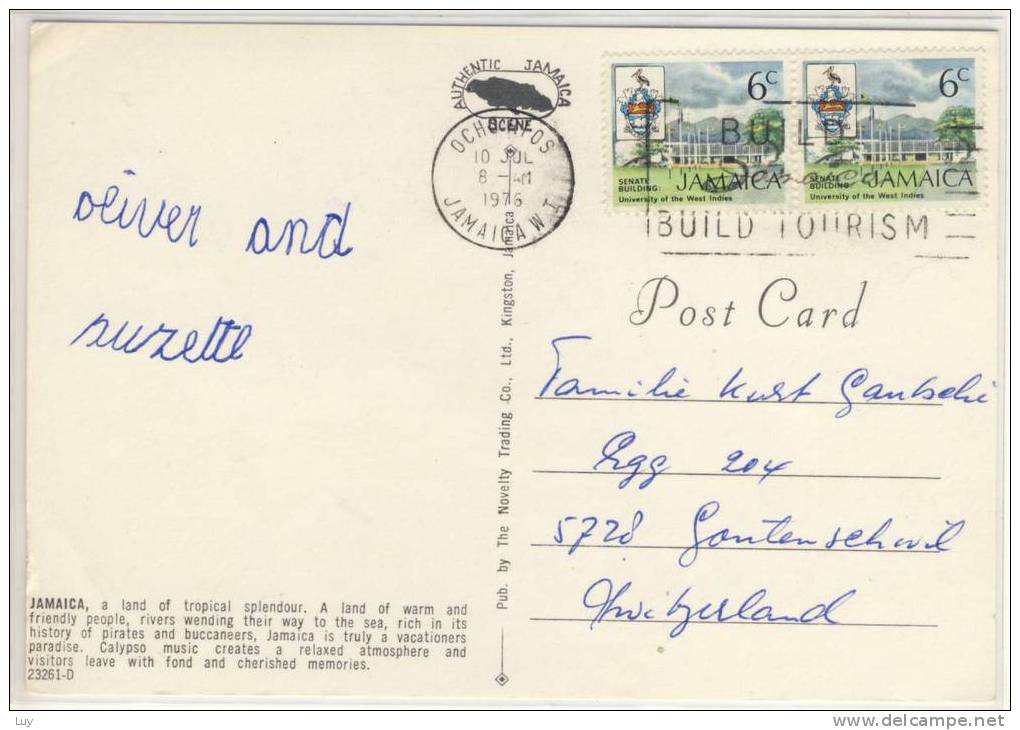 AUTHENTIC JAMAICA
SCENE
OCHO RIOS
10 JUL
8 - AM
1976
JAMAICA W.I.
6c
SENATE
BUILDING:
JAMAICA
University of the West Indies
6c
SENATE
BUILDING:
JAMAICA
University of the West Indies
BUILD
Jamaica
BUILD TOURISM
oliver and
suzette
Post Card
Familie Kurt Gautschi
Egg 204
5728 Gontenschwil
Switzerland
Pub. by The Novelty Trading Co., Ltd., Kingston, Jamaica
JAMAICA, a land of tropical splendour. A land of warm and
friendly people, rivers wending their way to the sea, rich in its
history of pirates and buccaneers, Jamaica is truly a vacationers
paradise. Calypso music creates a relaxed atmosphere and
visitors leave with fond and cherished memories.
23261-D
Luy
www.delcampe.net